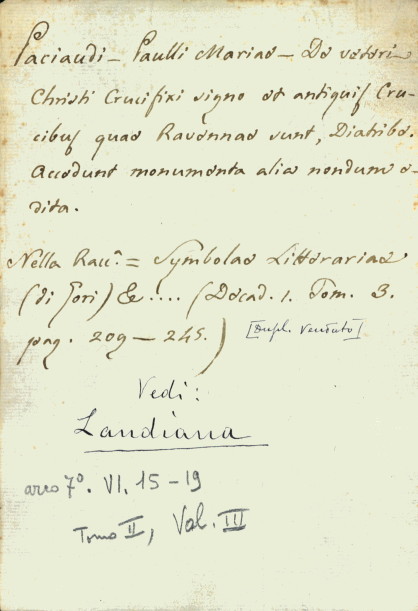 Paciaudi - Paulli Mariae - De veteri
Christi Crucifixi signo et antiquis Cru-
cibus quae Ravennae sunt, Diatriba.
Accedunt monumenta alia nondum e-
dita.
Nella Racc.ª = Symbolae Litterariae
(di Gori) &.... (Decad. 1. Tom. 3.
pag. 209 - 245.)
[Dupl. Venduto]
Vedi:
Landiana
arco 7º. VI. 15-19
Tomo II, Vol. III